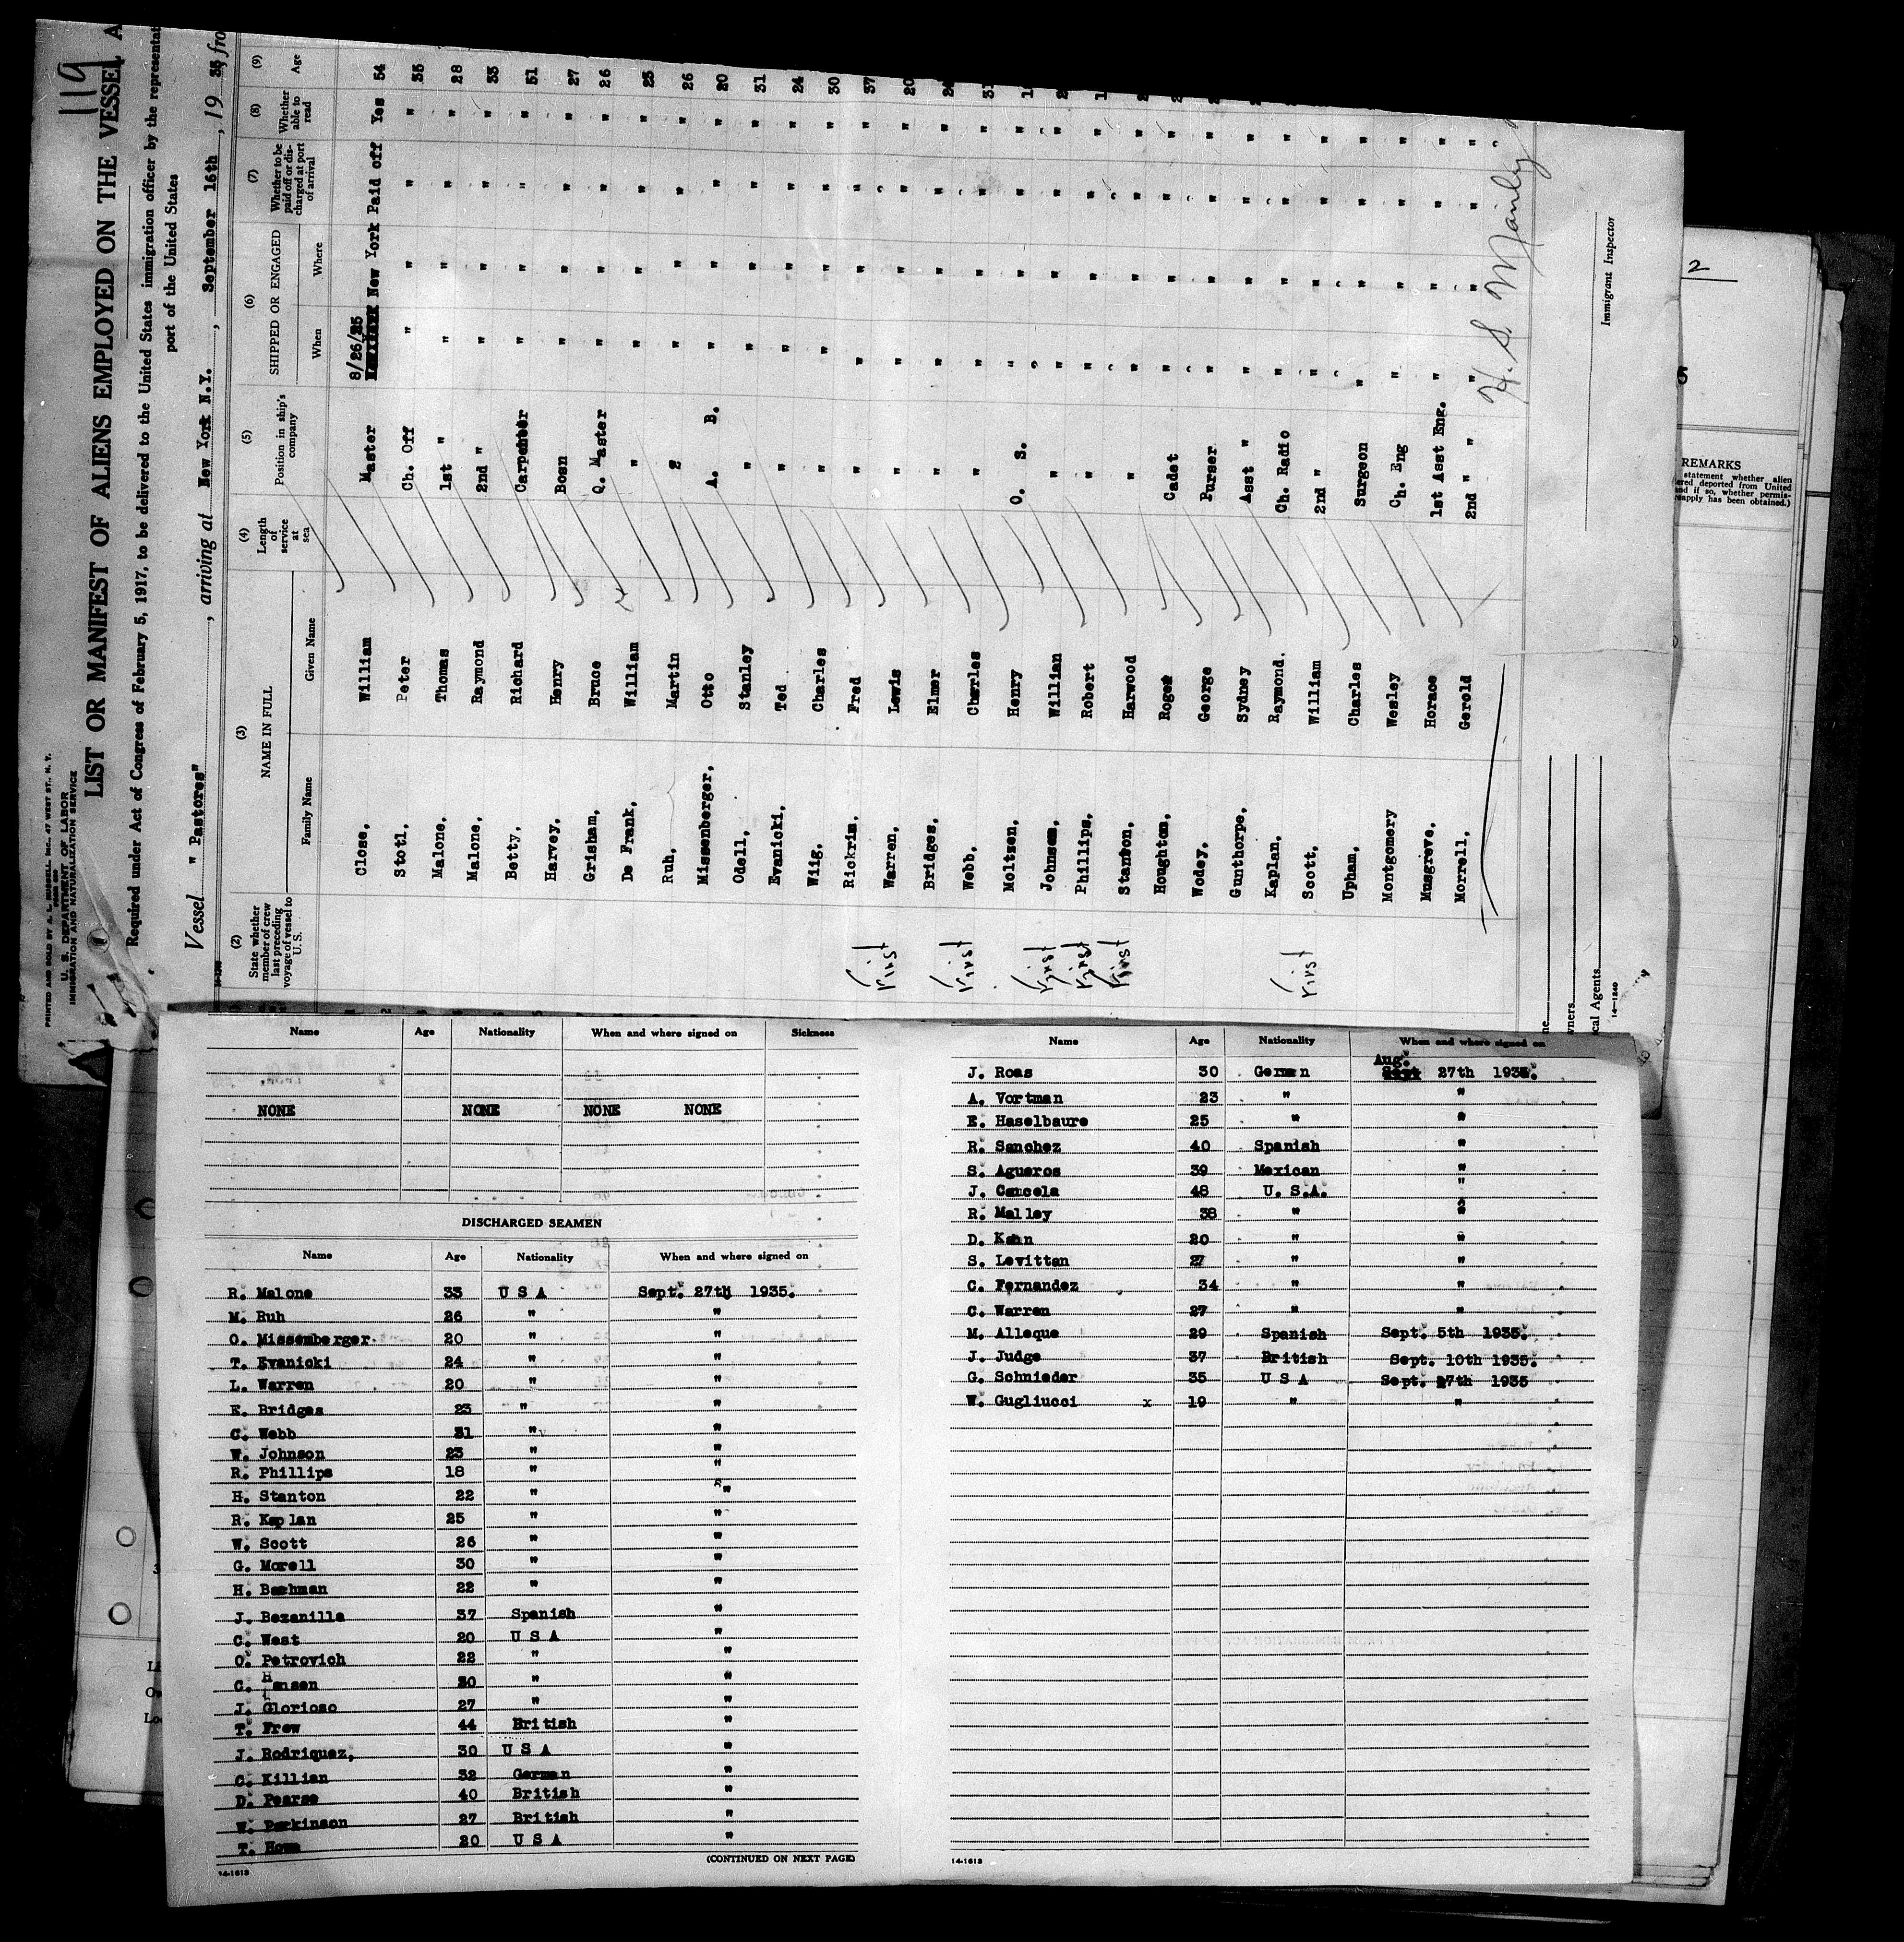 119
PRINTED AND SOLD BY A. L. RUSSELL, Inc., 47 WEST ST., N. Y.
U. S. DEPARTMENT OF LABOR
IMMIGRATION AND NATURALIZATION SERVICE
LIST OR MANIFEST OF ALIENS EMPLOYED ON THE VESSEL A
Required under Act of Congress of February 5, 1917, to be delivered to the United States immigration officer by the representat
port of the United States
Vessel " Pastores" , arriving at New York N.Y. , September 16th , 19 35, fro
(2) (3) (4) (5) (6) (7) (8) (9)
State whether member of crew last preceding voyage of vessel to U. S. NAME IN FULL Length of service at sea Position in ship's company SHIPPED OR ENGAGED Whether to be paid off or discharged at port of arrival Whether able to read Age
Family Name Given Name When Where
8/26/35
Close, William Master New York Paid off Yes 54
Stotl, Peter Ch. Off " " " " 35
Malone, Thomas 1st " " " " " 28
Malone, Raymond 2nd " " " " " 33
Betty, Richard Carpenter " " " " 51
Harvey, Henry Bosn " " " " 27
Grisham, Bruce Q. Master " " " " 26
De Frank, William " " " " " 25
Ruh, Martin " " " " 26
Missenberger, Otto A. B. " " " " 20
Odell, Stanley " " " " " 31
Evanicki, Ted " " " " " 24
Wiig, Charles " " " " " 30
Rickrim, Fred " " " " " 37
First Warren, Lewis " " " " " 20
Bridges, Elmer " " " " "
First Webb, Charles " " " " "
Moltzen, Henry O. S. " " " "
First Johnson, William " " " " "
First Phillips, Robert " " " " "
First Stanton, Harwood " " " " "
Houghton, Roger Cadet " " " "
Wodey, George Purser " " " "
Gunthorpe, Sydney Asst " " " " "
Kaplan, Raymond. Ch. Radio " " " "
First Scott, William 2nd " " " " "
Upham, Charles Surgeon " " " "
Montgomery Wesley Ch. Eng " " " "
Musgreve, Horace 1st Asst Eng. " " " "
Morrell, Gerold 2nd " " " " " "
H. S. Mainly
Immigrant Inspector
wners
cal Agents
14-1240
2
REMARKS
statement whether alien
ered deported from United
and if so, whether permis-
eapply has been obtained.)
Name Age Nationality When and where signed on Sickness
NONE NONE NONE NONE
DISCHARGED SEAMEN
Name Age Nationality When and where signed on
R. Malone 33 U S A Sept. 27th 1935.
M. Ruh 26 " "
O. Missemberger 20 " "
T. Evanicki 24 " "
L. Warren 20 " "
E. Bridges 23 " "
C. Webb 31 " "
W. Johnson 23 " "
R. Phillips 18 " "
H. Stanton 22 " "
R. Kaplan 25 " "
W. Scott 26 " "
G. Morell 30 " "
H. Bachman 22 " "
J. Bezanilla 37 Spanish "
C. West 20 U S A "
O. Petrovich 22 " "
C. Hansen 30 " "
J. Glorioso 27 " "
T. Frew 44 British "
J. Rodriquez, 30 U S A "
C. Killian 32 German "
D. Pearse 40 British "
W. Parkinson 27 British "
T. Howe 20 U S A "
(CONTINUED ON NEXT PAGE)
14-1613
Name Age Nationality When and where signed on
J. Roas 30 German Aug. 27th 1935.
A. Vortman 23 " "
E. Haselbaure 25 " "
R. Sanchez 40 Spanish "
S. Agueros 39 Mexican "
J. Cancela 48 U. S.A. "
R. Malley 38 " "
D. Kahn 20 " "
S. Levittan 27 " "
C. Fernandez 34 " "
C. Warren 27 " "
M. Alleque 29 Spanish Sept. 5th 1935.
J. Judge 37 British Sept. 10th 1935.
G. Schnieder 35 U S A Sept. 27th 1935
W. Gugliucci x 19 " "
14-1613